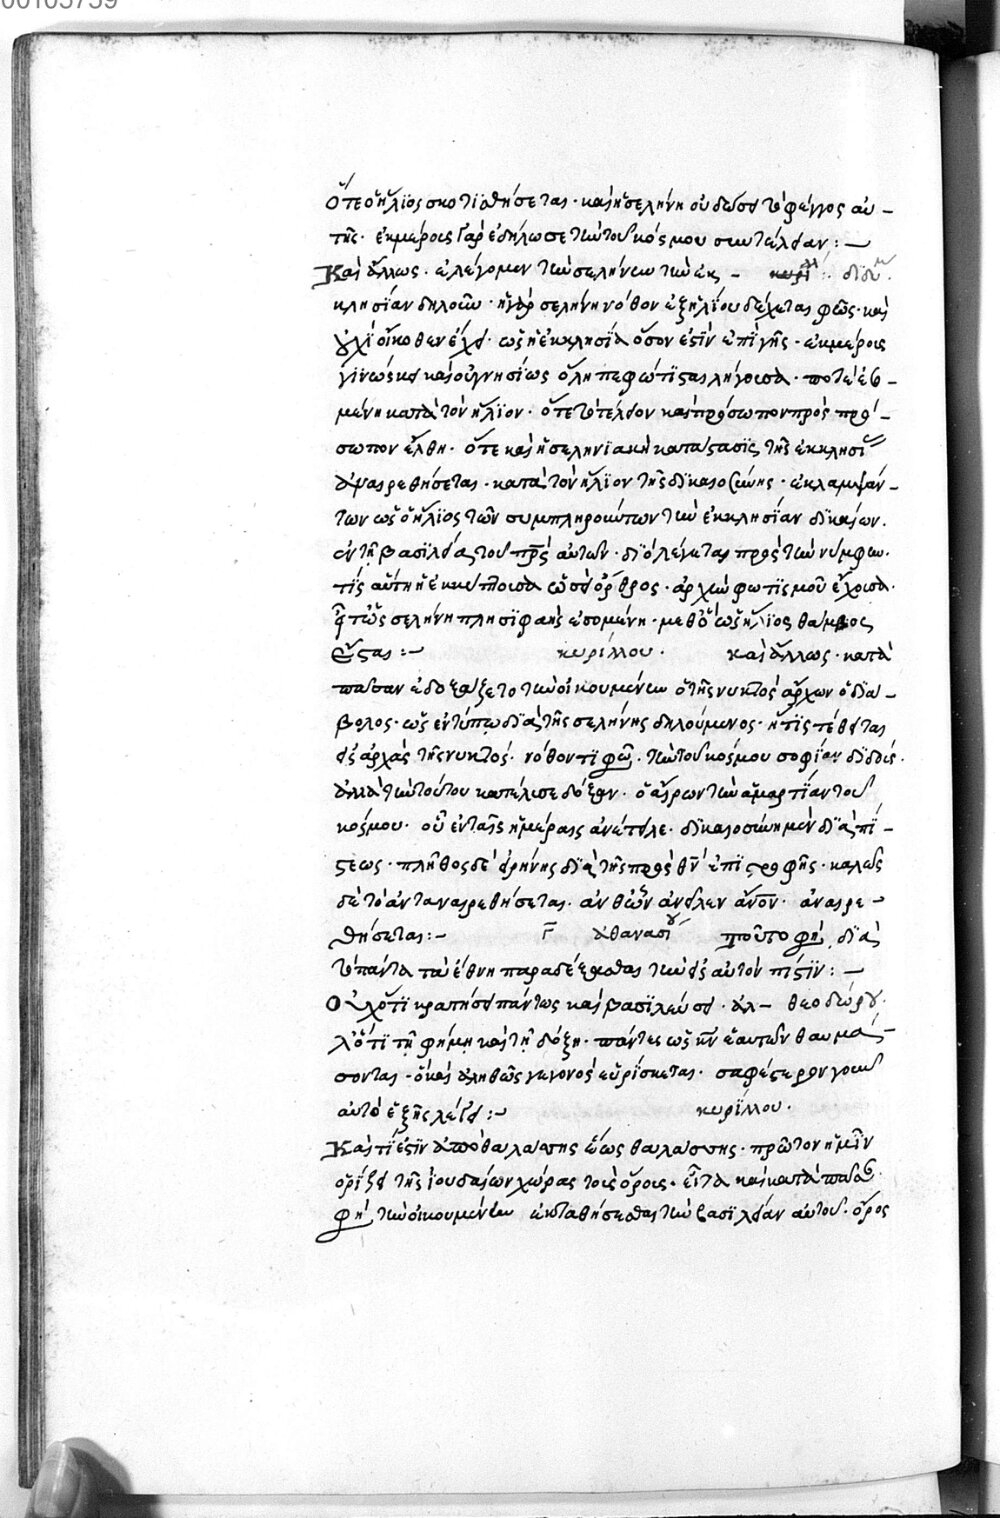 Ὅτε ὁ ἥλϊος σκοτϊσθήσεται· καὶ ἡ σελήνη οὐ δώσει τὸ φέγγος αὐ-
τῆς· ἐκ μέρους γὰρ ἐδήλωσε τὴν τοῦ κόσμου συντέλειαν:—
Καὶ ἄλλως· ἐλέγομεν τὴν σελήνην τὴν ἐκ- διδύμ
κλησίαν δηλοῦν· ἡ γὰρ σελήνη νόθον ἐξ ἡλίου δέχεται φῶς· καὶ
οὐχὶ οἴκοθεν ἔχει· ὡς ἡ ἐκκλησία ὅσον ἐστὶν ἐπὶ γῆς· ἐκ μέρους
γινώσκει καὶ οὐ γνησίως
μένη κατὰ τὸν ἥλϊον· ὅτε τὸ τέλειον καὶ πρόσωπον πρὸς πρό-
σωπον ἔλθη· ὅτε καὶ ἡ σεληνϊακὴ κατάστασϊς τῆς ἐκκλησί
ἀνταναιρεθήσεται· κατὰ τὸν ἥλϊον τῆς δϊκαιοσύνης· ἐκλαμψάν-
των ὡς ὁ ἥλϊος τῶν συμπληρούντων τὴν ἐκκλησίαν δϊκαίων·
ἐν τῇ βασϊλείᾳ τοῦ πρς αὐτῶν· δϊὸ λέγεται πρὸς τὴν νύμφην·
τίς αὕτη ἡ ἐκκύπτουσα ὡσεὶ ὄρθρος· ἀρχὴν φωτϊσμοῦ ἔχουσα·
εἶτα ὡς σελήνη πλησϊφαὴς ἑπομένη· μεθ' ὃ ὡς ἥλϊος θάμβος
ἔσται:— κυρίλλου· καὶ ἄλλως· κατὰ
πᾶσαν ἐδοξάζετο τὴν οἰκουμένην ὁ τῆς νυκτὸς ἄρχων ὁ δϊά-
βολος· ὡς ἐν τύπῳ δϊὰ τῆς σελήνης δηλούμενος· ἥτϊς τέθειται
εἰς ἀρχὰς τῆς νυκτός· νόθον τϊ φῶς· τὴν τοῦ κόσμου σοφίαν δϊδούς·
ἀλλὰ τὴν τούτου κατέλυσε δόξαν· ὁ αἴρων τὴν ἁμαρτίαν τοῦ
κόσμου· οὗ ἐν ταῖς ἡμέραις ἀνέτειλε· δϊκαιοσύνη μὲν δϊὰ πί-
στεως· πλῆθος δὲ εἰρήνης δϊὰ τῆς πρὸς θν ἐπϊστροφῆς· καλῶς
δὲ τὸ ἀνταναιρεθήσεται· ἀνθ' ὧν ἀνεῖλεν ανον· ἀναιρε-
θήσεται:— ἀθανασίου τοῦτό φη δϊὰ
τὸ πάντα τὰ ἔθνη παραδέξασθαι τὴν εἰς αὐτὸν πίστϊν:—
Οὐχ ὅτϊ κρατήσει πάντως καὶ βασϊλεύσει· ἀλ- θεοδώρου·
λ' ὅτι τῇ φήμῃ καὶ τῇ δόξῃ· πάντες ὡς κν ἑαυτῶν θαυμά-
σονται· ὃ καὶ ἀληθῶς γεγονὸς εὑρίσκεται· σαφέστερον γοῦν
αὐτὸ ἑξῆς λέγει:— κυρίλλου·
Καὶ τί ἐστϊν ἀπὸ θαλάσσης ἕως θαλάσσης· πρῶτον ἡμῖν
ὁρίζει τῆς ἰουδαίων χώρας τοὺς ὅρους· εἶτα καὶ κατὰ πᾶσαν
φη τὴν οἰκουμένην ἐκταθήσεσθαι τὴν βασϊλείαν αὐτοῦ· ὅρος